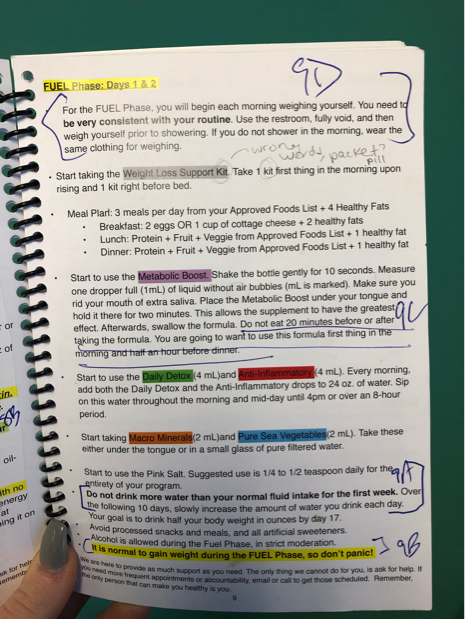 FUEL Phase: Days 1 & 2
9D
For the FUEL Phase, you will begin each morning weighing yourself. You need to
be very consistent with your routine. Use the restroom, fully void, and then
weigh yourself prior to showering. If you do not shower in the morning, wear the
same clothing for weighing.
wrong
word, packet?
pill
• Start taking the Weight Loss Support Kit. Take 1 kit first thing in the morning upon
rising and 1 kit right before bed.
• Meal Plan: 3 meals per day from your Approved Foods List + 4 Healthy Fats
• Breakfast: 2 eggs OR 1 cup of cottage cheese + 2 healthy fats
• Lunch: Protein + Fruit + Veggie from Approved Foods List + 1 healthy fat
• Dinner: Protein + Fruit + Veggie from Approved Foods List + 1 healthy fat
• Start to use the Metabolic Boost. Shake the bottle gently for 10 seconds. Measure
one dropper full (1mL) of liquid without air bubbles (mL is marked). Make sure you
rid your mouth of extra saliva. Place the Metabolic Boost under your tongue and
hold it there for two minutes. This allows the supplement to have the greatest
effect. Afterwards, swallow the formula. Do not eat 20 minutes before or after
9C
taking the formula. You are going to want to use this formula first thing in the
morning and half an hour before dinner.
• Start to use the Daily Detox (4 mL)and Anti-Inflammatory (4 mL). Every morning,
add both the Daily Detox and the Anti-Inflammatory drops to 24 oz. of water. Sip
on this water throughout the morning and mid-day until 4pm or over an 8-hour
period.
• Start taking Macro Minerals(2 mL)and Pure Sea Vegetables(2 mL). Take these
either under the tongue or in a small glass of pure filtered water.
• Start to use the Pink Salt. Suggested use is 1/4 to 1/2 teaspoon daily for the
9A
entirety of your program.
• Do not drink more water than your normal fluid intake for the first week. Over
the following 10 days, slowly increase the amount of water you drink each day.
Your goal is to drink half your body weight in ounces by day 17.
• Avoid processed snacks and meals, and all artificial sweeteners.
• Alcohol is allowed during the Fuel Phase, in strict moderation.
• It is normal to gain weight during the FUEL Phase, so don't panic!
9B
We are here to provide as much support as you need. The only thing we cannot do for you, is ask for help. If
you need more frequent appointments or accountability, email or call to get those scheduled. Remember,
the only person that can make you healthy is you.
9
or
of
oil-
ith no
energy
at
ing it on
sk for help